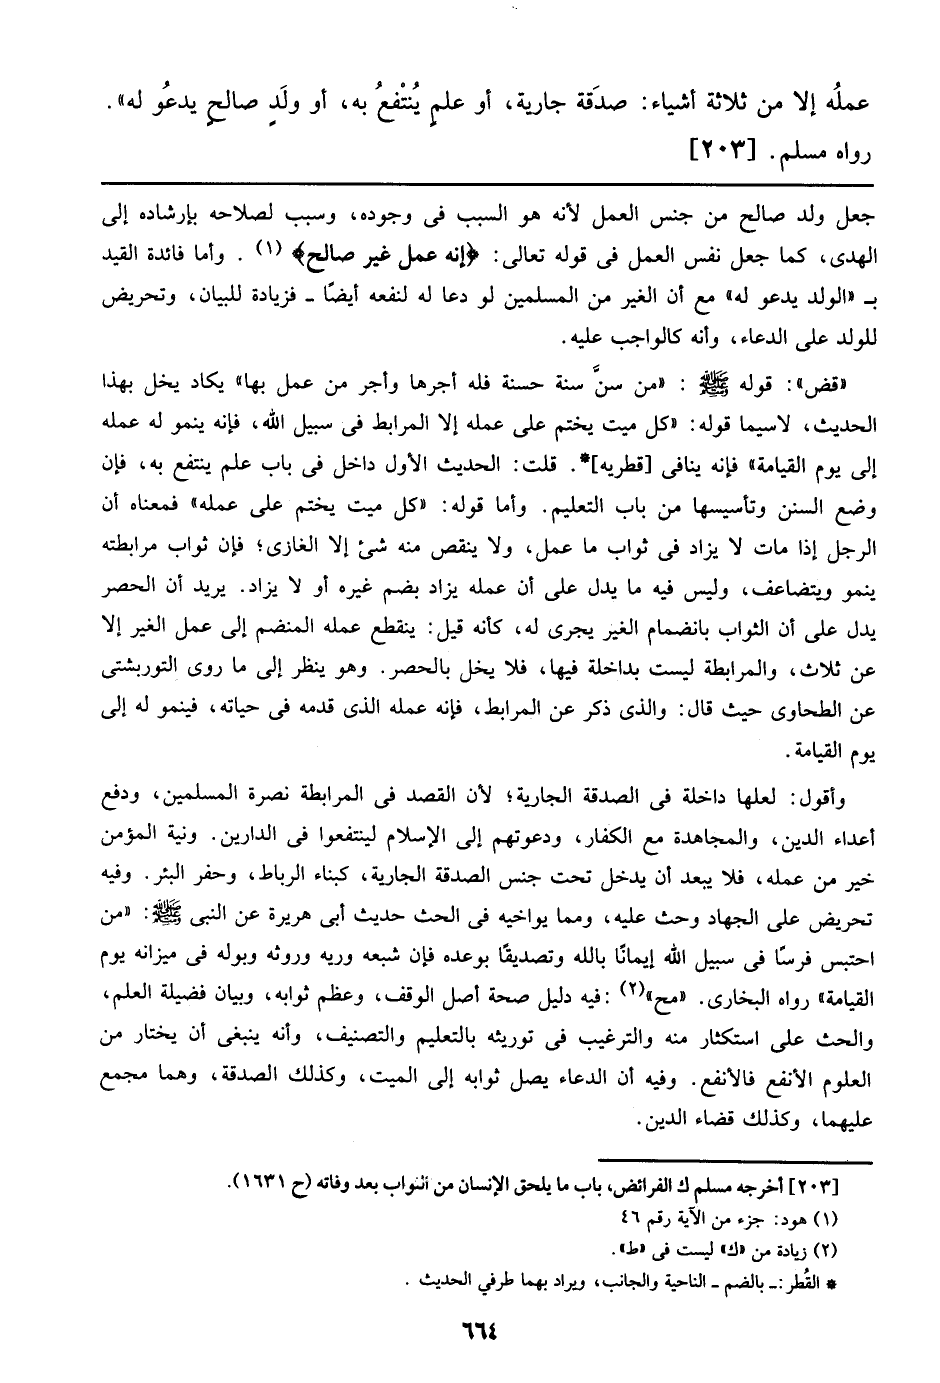 عملُه إلا من ثلاثة أشياء: صدَقة جارية، أو علمٍ يُنْتْفعُ به، أو ولَدٍ صالحٍ يدعُو له».
رواه مسلم. [٢٠٣]
جعل ولد صالح من جنس العمل لأنه هو السبب فى وجوده، وسبب لصلاحه بإرشاده إلى
الهدى، كما جعل نفس العمل فى قوله تعالى: ﴿إنه عمل غير صالح﴾ (١) . وأما فائدة القيد
بـ «الولد يدعو له» مع أن الغير من المسلمين لو دعا له لنفعه أيضًا ــ فزيادة للبيان، وتحريض
للولد على الدعاء، وأنه كالواجب عليه.
«قض»: قوله ﷺ : «من سنَّ سنة حسنة فله أجرها وأجر من عمل بها» يكاد يخل بهذا
الحديث، لاسيما قوله: «كل ميت يختم على عمله إلا المرابط فى سبيل الله، فإنه ينمو له عمله
إلى يوم القيامة» فإنه ينافى [قطريه]*. قلت: الحديث الأول داخل فى باب علم ينتفع به، فإن
وضع السنن وتأسيسها من باب التعليم. وأما قوله: «كل ميت يختم على عمله» فمعناه أن
الرجل إذا مات لا يزاد فى ثواب ما عمل، ولا ينقص منه شئ إلا الغازى؛ فإن ثواب مرابطته
ينمو ويتضاعف، وليس فيه ما يدل على أن عمله يزاد بضم غيره أو لا يزاد. يريد أن الحصر
يدل على أن الثواب بانضمام الغير يجرى له، كأنه قيل: ينقطع عمله المنضم إلى عمل الغير إلا
عن ثلاث، والمرابطة ليست بداخلة فيها، فلا يخل بالحصر. وهو ينظر إلى ما روى التوربشتى
عن الطحاوى حيث قال: والذى ذكر عن المرابط، فإنه عمله الذى قدمه فى حياته، فينمو له إلى
يوم القيامة.
وأقول: لعلها داخلة فى الصدقة الجارية؛ لأن القصد فى المرابطة نصرة المسلمين، ودفع
أعداء الدين، والمجاهدة مع الكفار، ودعوتهم إلى الإسلام لينتفعوا فى الدارين. ونية المؤمن
خير من عمله، فلا يبعد أن يدخل تحت جنس الصدقة الجارية، كبناء الرباط، وحفر البئر. وفيه
تحريض على الجهاد وحث عليه، ومما يواخيه فى الحث حديث أبى هريرة عن النبى ﷺ: «من
احتبس فرسًا فى سبيل الله إيمانًا بالله وتصديقًا بوعده فإن شبعه وريه وروثه وبوله فى ميزانه يوم
القيامة» رواه البخارى. «مح»(٢) :فيه دليل صحة أصل الوقف، وعظم ثوابه، وبيان فضيلة العلم،
والحث على استكثار منه والترغيب فى توريثه بالتعليم والتصنيف، وأنه ينبغى أن يختار من
العلوم الأنفع فالأنفع. وفيه أن الدعاء يصل ثوابه إلى الميت، وكذلك الصدقة، وهما مجمع
عليهما، وكذلك قضاء الدين.
[٢٠٣] أخرجه مسلم ك الفرائض، باب ما يلحق الإنسان من الثواب بعد وفاته (ح ١٦٣١).
(١) هود: جزء من الآية رقم ٤٦
(٢) زيادة من «ك» ليست فى «ط».
* القُطر :ــ بالضم ــ الناحية والجانب، ويراد بهما طرفي الحديث .
٦٦٤